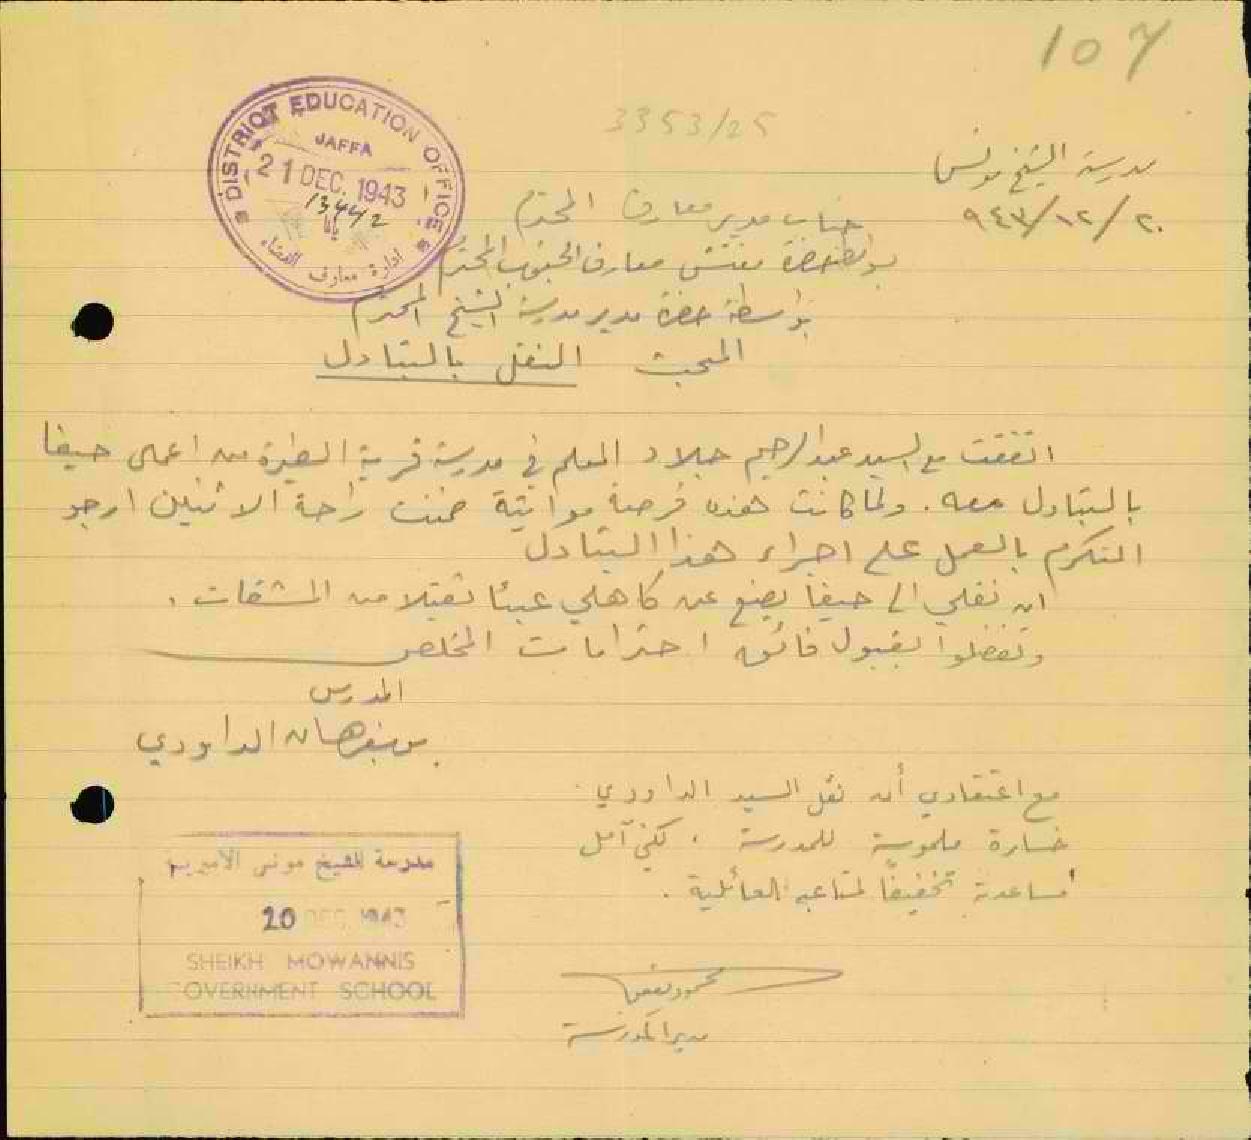 107
3353/25
DISTRICT EDUCATION OFFICE
JAFFA
21 DEC. 1943
13442
يافا
ادارة معارف القضاء
مدرسة الشيخ مونس
٢٠/١٢/٩٤٣
جناب مدير معارف المحترم
بواسطة حضرة مفتش معارف الجنوب المحترم
بواسطة حضرة مدير مدرسة الشيخ المحترم
المبحث النقل بالتبادل
اتفقت مع السيد عبدالرحيم جلاد المعلم في مدرسة قرية الطيرة من اعمال حيفا
بالتبادل معه. ولما كانت هذه فرصة مواتية ضمنت راحة الاثنين ارجو
التكرم بالعمل على اجراء هذا التبادل
ان نقلي الى حيفا يضع عن كاهلي عبئا ثقيلا من المشقات.
وتفضلوا بقبول فائق احترامات المخلص
المدرس
الداودي
مع اعتقادي أن نقل السيد الداودي
خسارة ملموسة للمدرسة. لكني آمل
مساعدته تخفيفاً لمتاعبه العائلية.
محمود
مدير المدرسة
مدرسة الشيخ مونس الاميرية
20 DEC 1943
SHEIKH MOWANNIS
GOVERNMENT SCHOOL